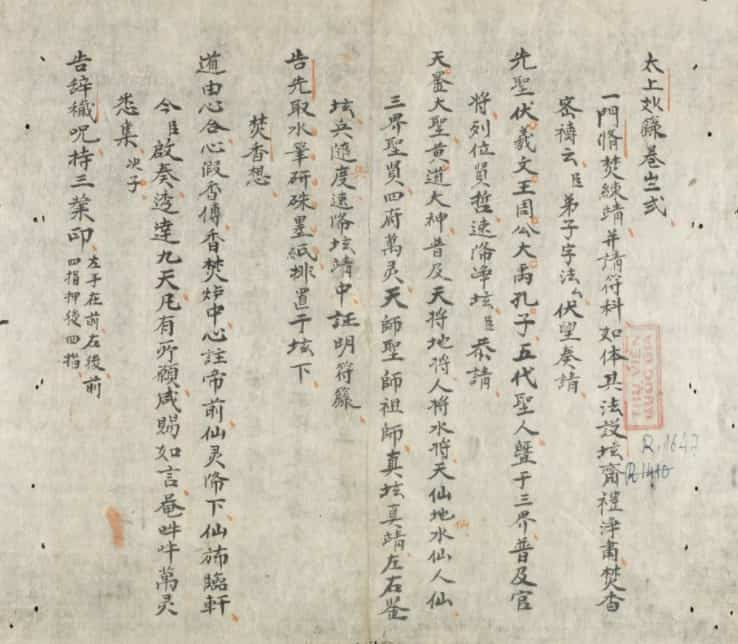 太上籙卷弍
一門脩焚練靖并請符科如体其法設坛齋禮淨肅焚香
密禱云臣弟子字法厶伏望奏請
先聖伏羲文王周公大禹孔子五代聖人曁于三界普及官
將列位賢哲速降净坛臣恭請
天罡大聖黄道大神普及天將地將人將水將天仙地仙水仙人仙
三界聖賢四府萬灵天師聖師祖師真坛真靖左右
坛兵随度速降坛靖中証明符籙
告先取水筆研硃墨紙排置于坛下
焚香想
道由心合心假香傳香焚炉中心註帝前仙灵降下仙斾臨軒
今臣啟奏逕達九天凡有所願咸賜如言菴吽吽萬灵
悉集次子
告辝穢呪持三業印左手在前左後前
四指押後四指
THƯ VIỆN
QUỐC GIA
R.1647
R.1410